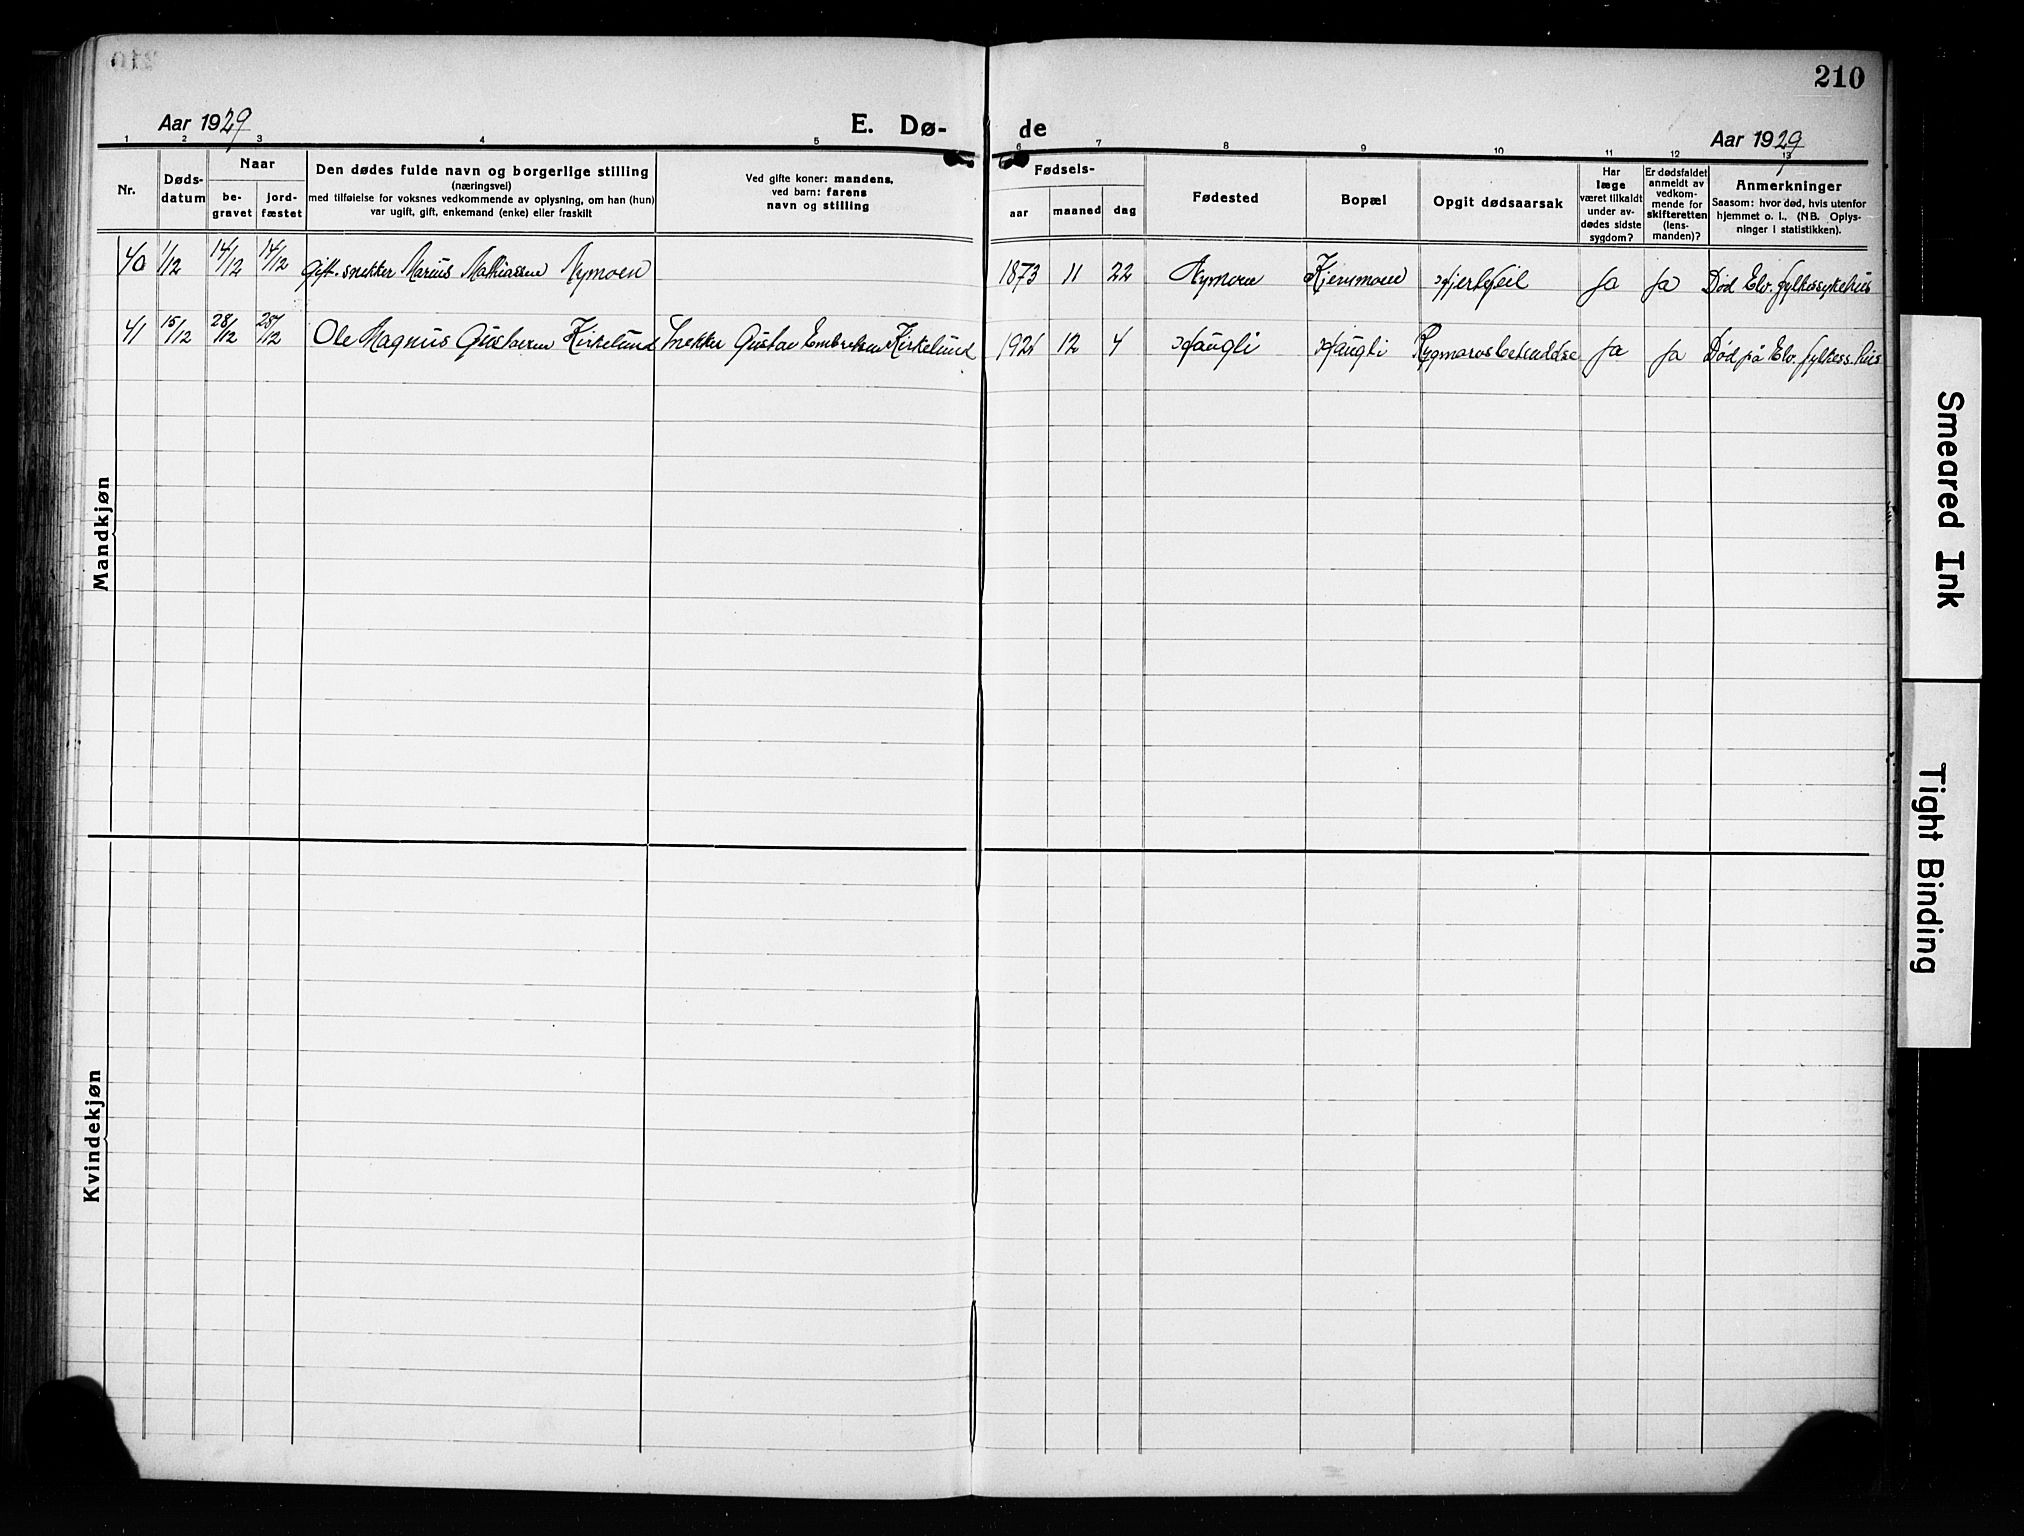 210
Aar 1929
E. Dø-
de
Aar 1929
1 2 3 4 5 6 7 8 9 10 11 12 13
Nr.
Døds-
datum
Naar
be-
gravet
jord-
fæstet
Den dødes fulde navn og borgerlige stilling
(næringsvei)
med tilføielse for voksnes vedkommende av oplysning, om han (hun)
var ugift, gift, enkemand (enke) eller fraskilt
Ved gifte koner: mandens,
ved barn: farens
navn og stilling
Fødsels-
aar
maaned
dag
Fødested
Bopæl
Opgit dødsaarsak
Har
læge
været tilkaldt
under av-
dødes sidste
sygdom?
Er dødsfaldet
anmeldt av
vedkom-
mende for
skifteretten
(lens-
manden)?
Anmerkninger
Saasom: hvor død, hvis utenfor
hjemmet o. l.. (NB. Oplys-
ninger i statistikken).
40 1/12 14/12 14/12 Gift. snekker Marius Mathiassen Nymoen 1873 11 22 Nymoen Kjensmoen Hjertefeil Ja Ja Død Elv. fylkessykehus
41 15/12 28/12 28/12 Ole Magnus Gustavsen Kirkelund Snekker Gustav Embretsen Kirkelund 1921 12 4 Haugli Haugli Rygmarvsbetændelse Ja Ja Død på Elv. fylkess.hus
Mandkjøn
Kvindekjøn
Smeared Ink
Tight Binding